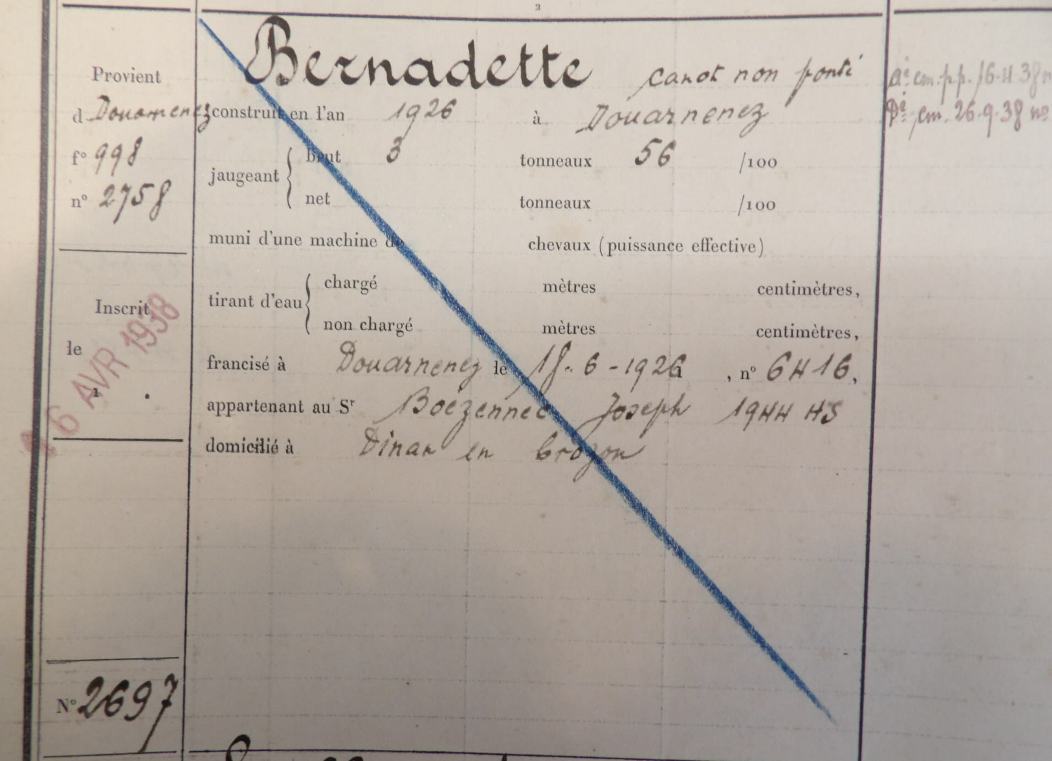 Provient
d Douarnenez
f° 998
n° 2758
Inscrit
le
6 AVR 1938
N° 2697
Bernadette canot non ponté
construit en l'an 1926 à Douarnenez
jaugeant { brut 3 tonneaux 56 /100
net tonneaux /100
muni d'une machine de chevaux (puissance effective)
tirant d'eau { chargé mètres centimètres,
non chargé mètres centimètres,
francisé à Douarnenez le 18-6-1926, n° 6416,
appartenant au Sr Boëzennec Joseph 1944 HS
domicilié à Dinan en Crozon
em. p.p. 16.4.38
em. 26.9.38 n°